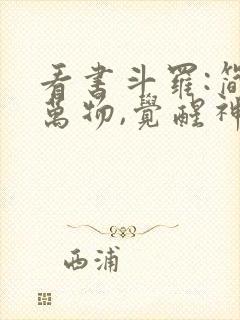 看書斗羅:簡
萬物,覺醒神
西浦